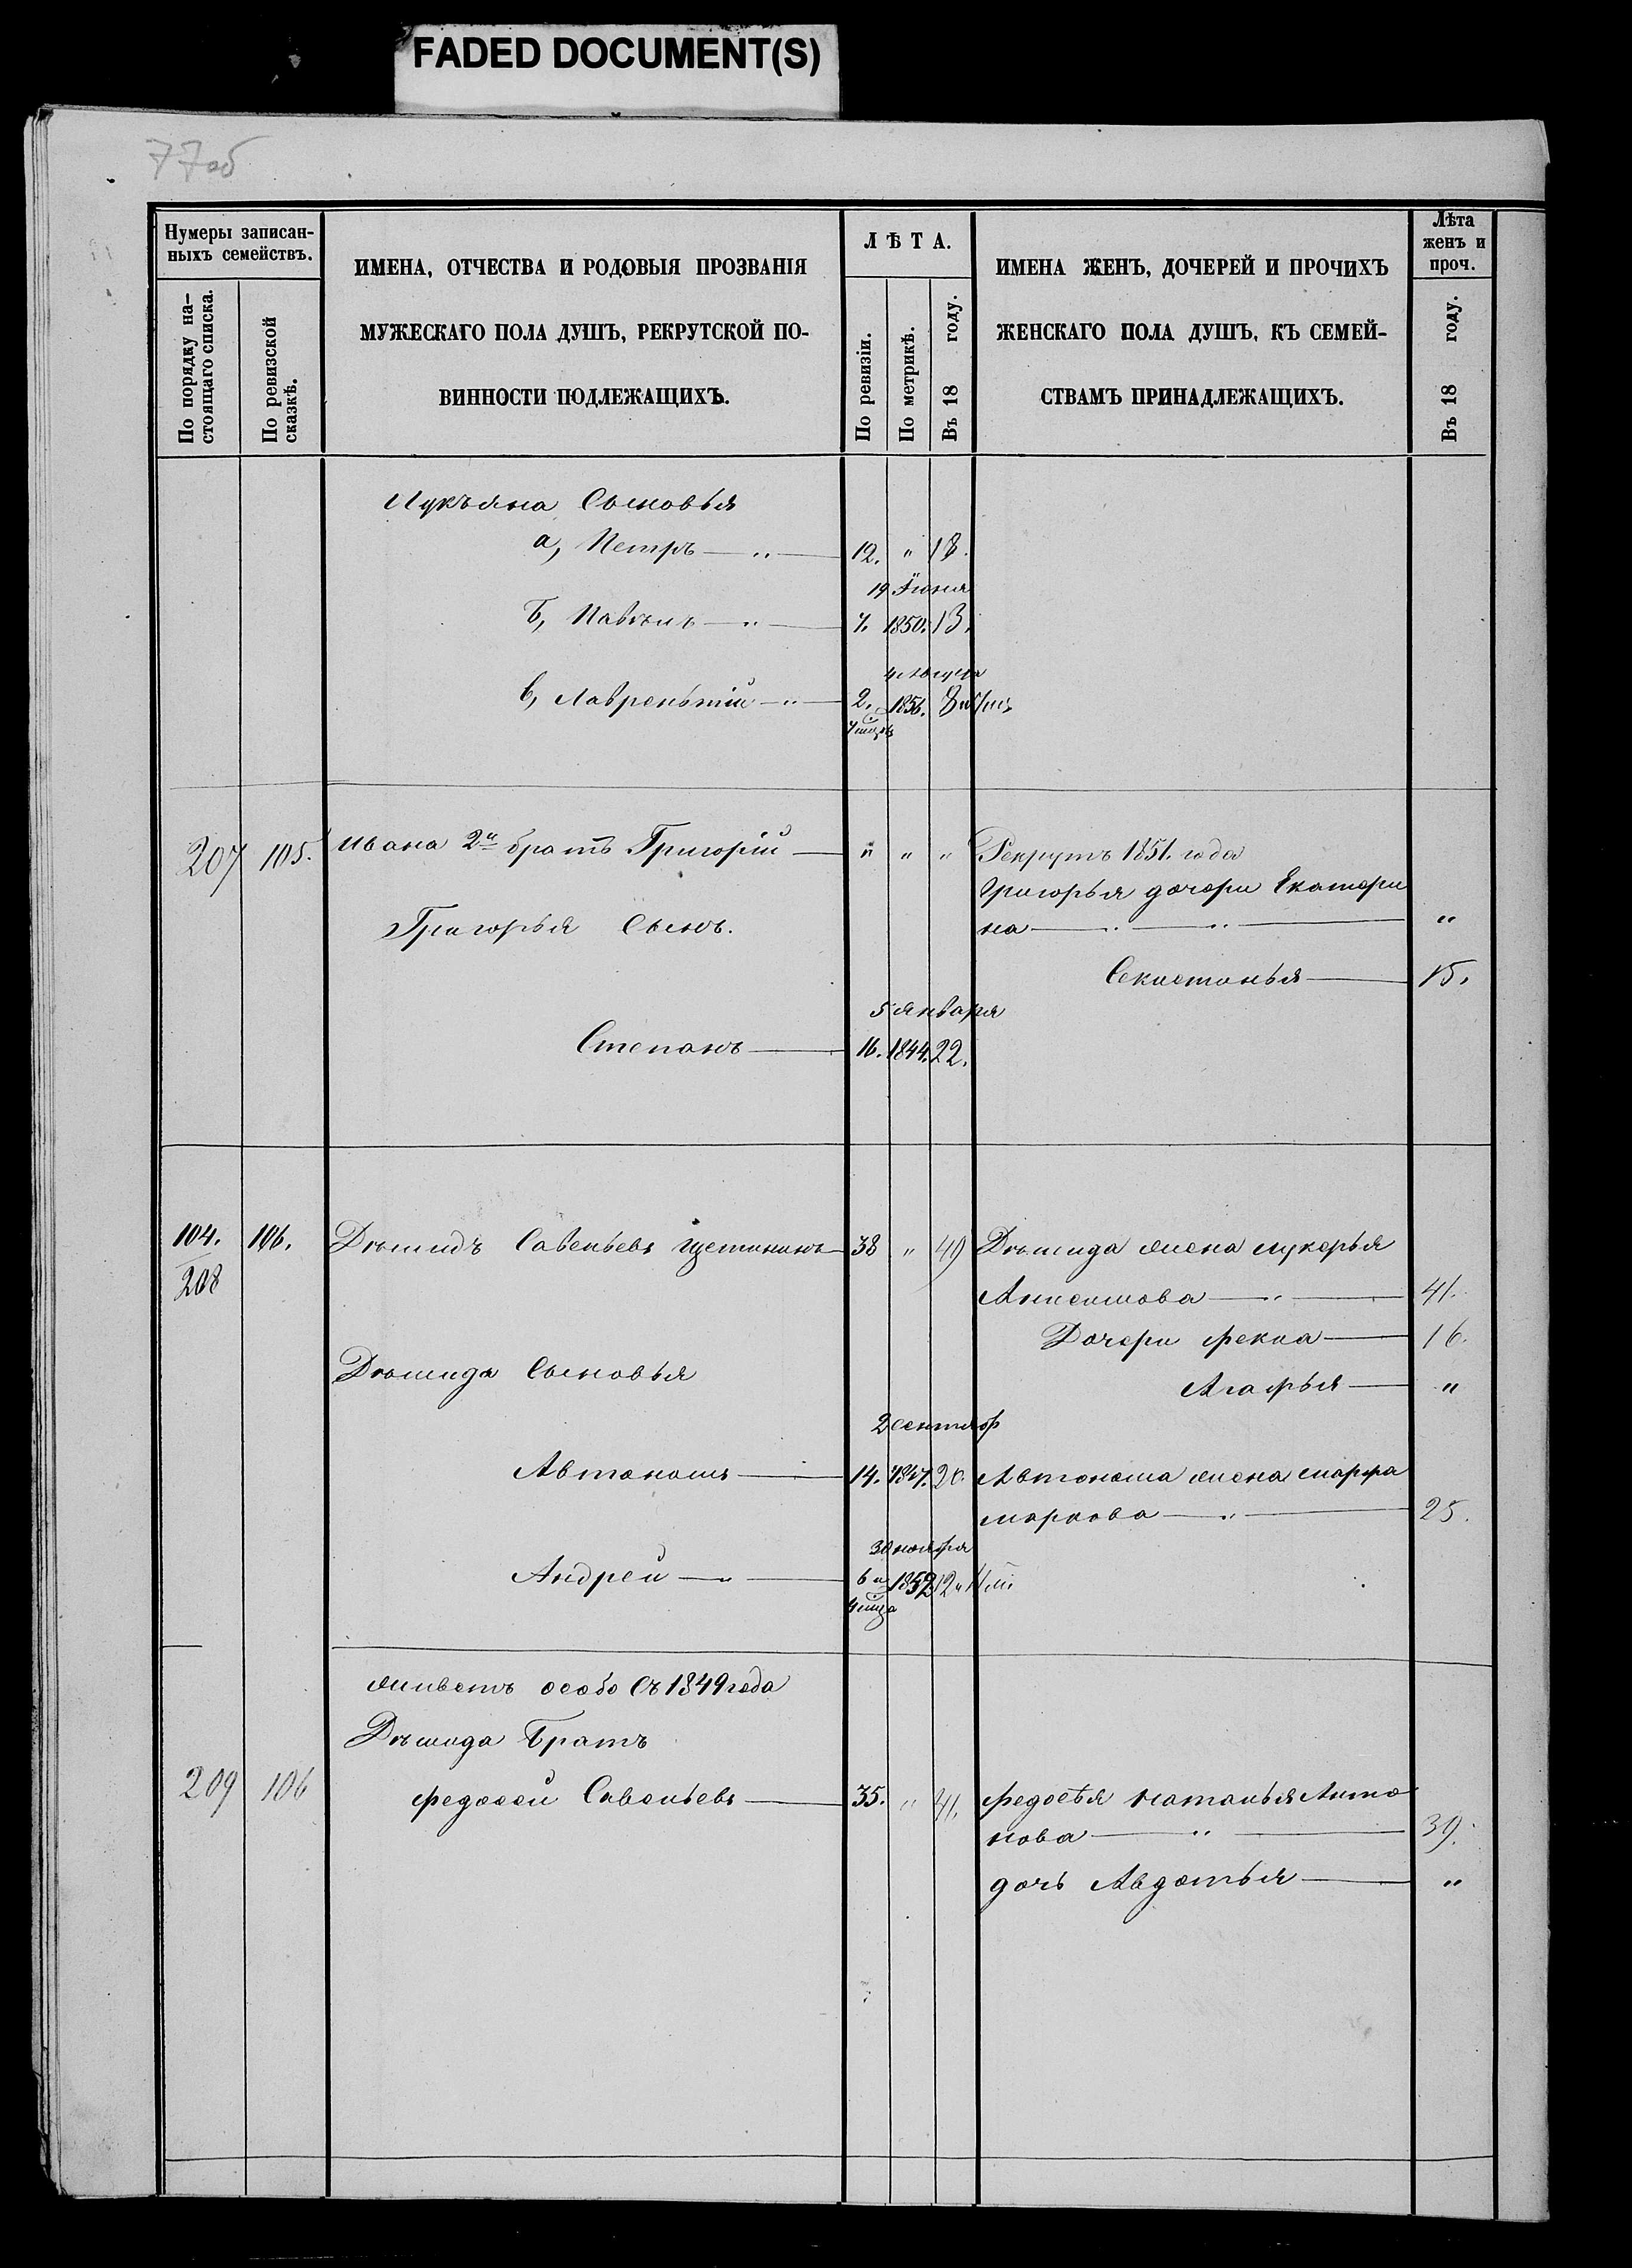 FADED DOCUMENT(S)
77об
Нумеры записан-
ныхъ семействъ.
По порядку на-
стоящаго списка.
По ревизской
сказкѣ.
ИМЕНА, ОТЧЕСТВА И РОДОВЫЯ ПРОЗВАНІЯ
МУЖЕСКАГО ПОЛА ДУШЪ, РЕКРУТСКОЙ ПО-
ВИННОСТИ ПОДЛЕЖАЩИХЪ.
ЛѢТА.
По ревизіи.
По метрикѣ.
Въ 18 году.
ИМЕНА ЖЕНЪ, ДОЧЕРЕЙ И ПРОЧИХЪ
ЖЕНСКАГО ПОЛА ДУШЪ, КЪ СЕМЕЙ-
СТВАМЪ ПРИНАДЛЕЖАЩИХЪ.
Лѣта
женъ и
проч.
Въ 18 году.
Лукъяна Сыновья
а, Петръ — „ — 12. „ 18.
19 Іюня
б, Павелъ — „ — 7. 1850. 13.
4 Августа
в, Лаврентій — „ — 2. 1856. 8
7 мцовъ
207 105. Ивана 2й братъ Григорій — „ „ „ Рекрутъ 1851. года
Григорья дочери Екатери
Григорья Сынъ. на — „ — „ — „
Секлетинья — 15.
5 января
Степанъ — 16. 1844. 22.
104. 106. Демидъ Савельевъ Щетининъ — 38 „ 49 Демида жена Лукерья
208
Анисимова — „ — 41.
Дочери Фекла — 16.
Демида Сыновья
Агафья — „
2 сентябр
Автономъ — 14. 1847. 20. Автонома жена Марфа
Маркова — „ — 25.
30 ноября
Андрей — „ — 6 и 1852 12 и
4 мца
живетъ особо съ 1849 года
Демида Братъ
209 106 Федосей Савельевъ — 35. „ 41. Федосѣя Наталья Анто
нова — „ — 39.
дочь Авдотья — „